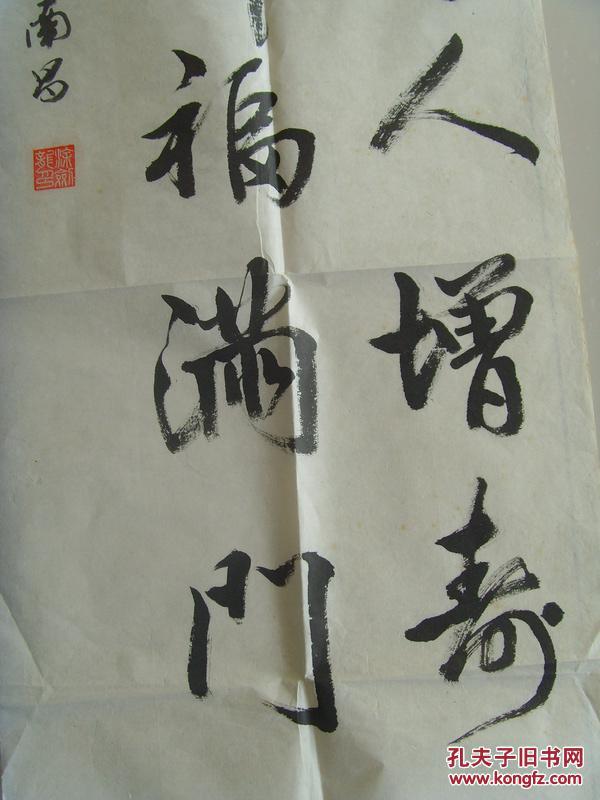 人增寿
福滿門
南昌
孔夫子旧书网
www.kongfz.com